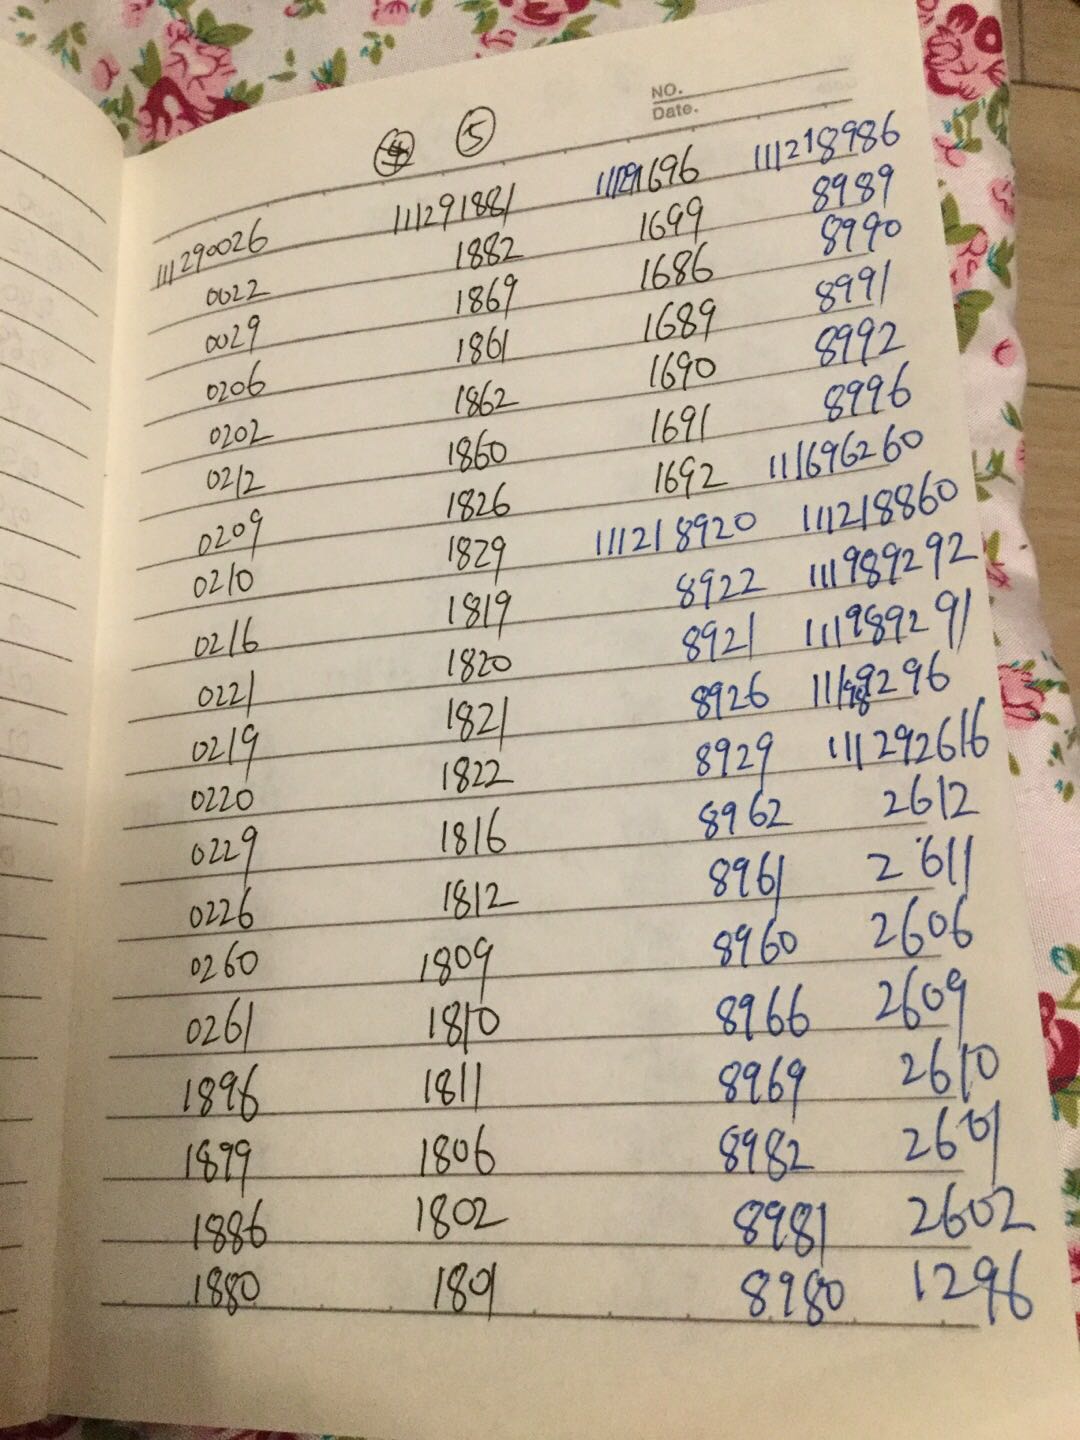 NO.
Date.
④ ⑤
111290026 111291881 111291696 111218986
0022 1882 1699 8989
0029 1869 1686 8990
0206 1861 1689 8991
0202 1862 1690 8992
0212 1860 1691 8996
0209 1826 1692 111696260
0210 1829 111218920 111218860
0216 1819 8922 111989292
0221 1820 8921 111989291
0219 1821 8926 111989296
0220 1822 8929 111292616
0229 1816 8962 2612
0226 1812 8961 2611
0260 1809 8960 2606
0261 1810 8966 2609
1896 1811 8969 2610
1899 1806 8982 2601
1886 1802 8981 2602
1880 1801 8980 1296